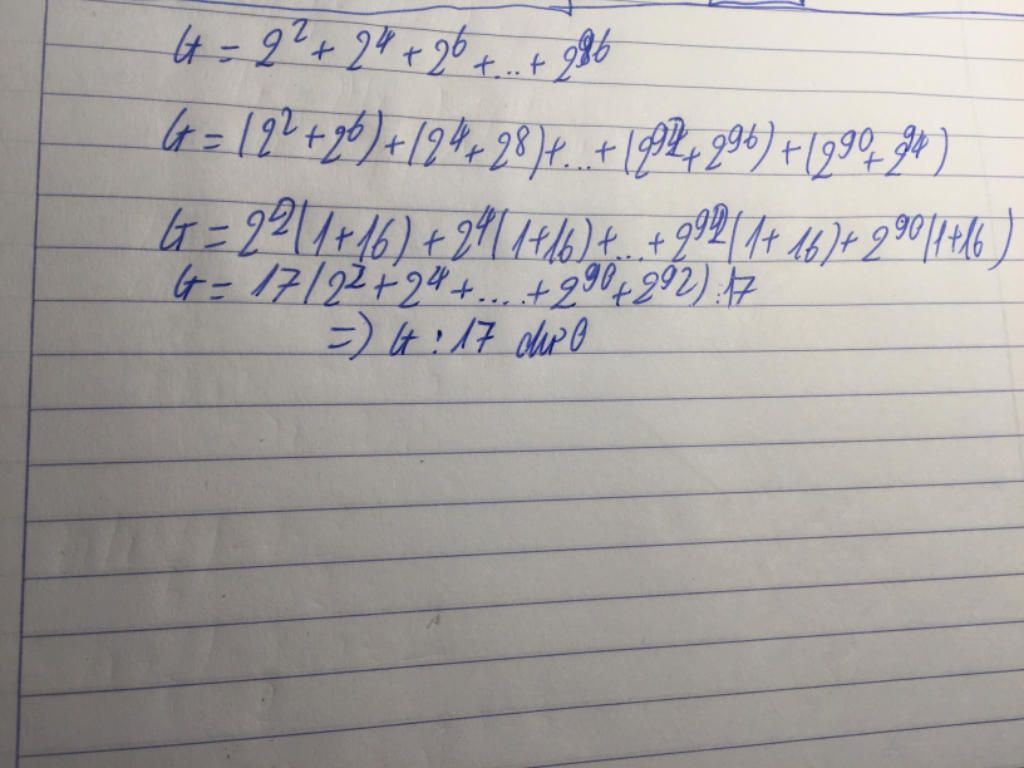 G = 2² + 2⁴ + 2⁶ + ... + 2⁹⁶
G = (2² + 2⁶) + (2⁴ + 2⁸) + ... + (2⁹² + 2⁹⁶) + (2⁹⁰ + 2⁹⁴)
G = 2²(1+16) + 2⁴(1+16) + ... + 2⁹²(1+16) + 2⁹⁰(1+16)
G = 17(2² + 2⁴ + .... + 2⁹⁰ + 2⁹²) : 17
=) G : 17 dư 0